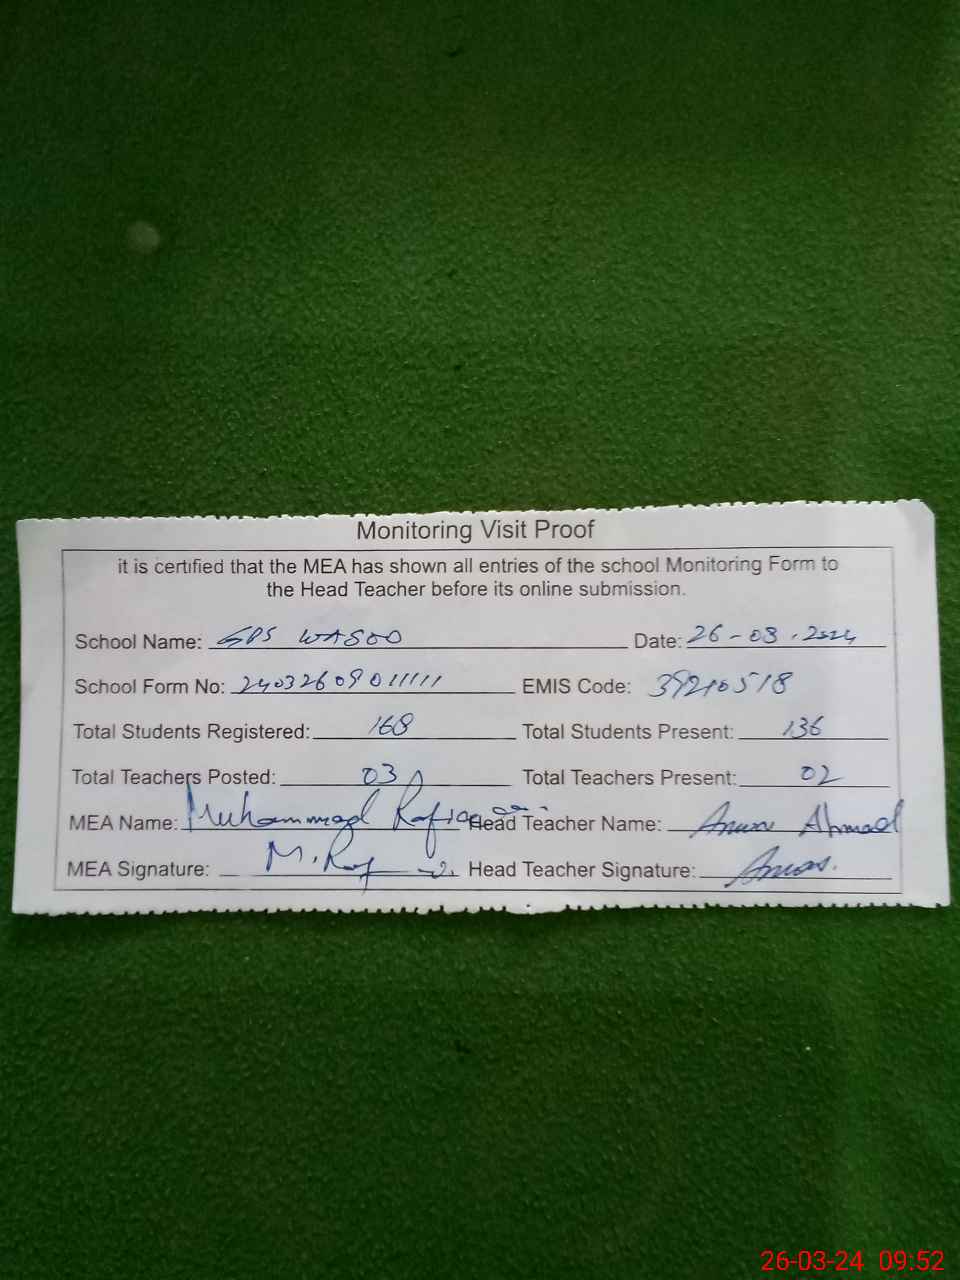 Monitoring Visit Proof
it is certified that the MEA has shown all entries of the school Monitoring Form to
the Head Teacher before its online submission.
School Name: GPS WASOO Date: 26-03-2024
School Form No: 24032609011111 EMIS Code: 39210518
Total Students Registered: 168 Total Students Present: 136
Total Teachers Posted: 03 Total Teachers Present: 02
MEA Name: Muhammad Head Teacher Name: Ahmad
MEA Signature: M. Head Teacher Signature:
26-03-24 09:52